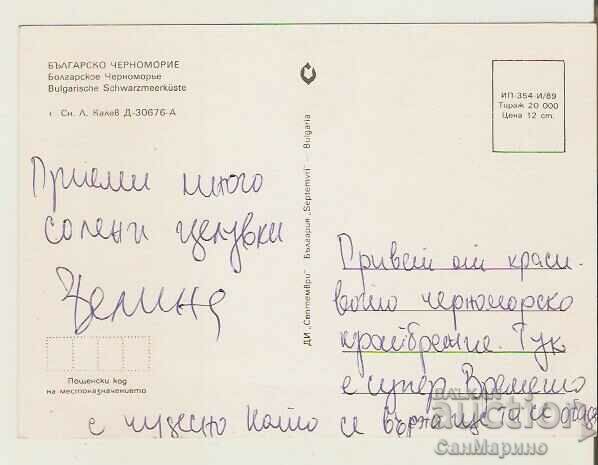 БЪЛГАРСКО ЧЕРНОМОРИЕ
Болгарское Черноморье
Bulgarische Schwarzmeerküste
г Сн. Л. Калев Д-30676-А
ИП-354-И/89
Тираж 20 000
Цена 12 ст.
ДИ „Септември" България „Septemvri" — Bulgaria
Приеми много
солени целувки
Привет от краси
вото черноморско
крайбрежие. Тук
е супер Времето
е чудесно Като се върна ще ти се обадя
Пощенски код
на местоназначението
БАЛКАН
auction
СанМарино